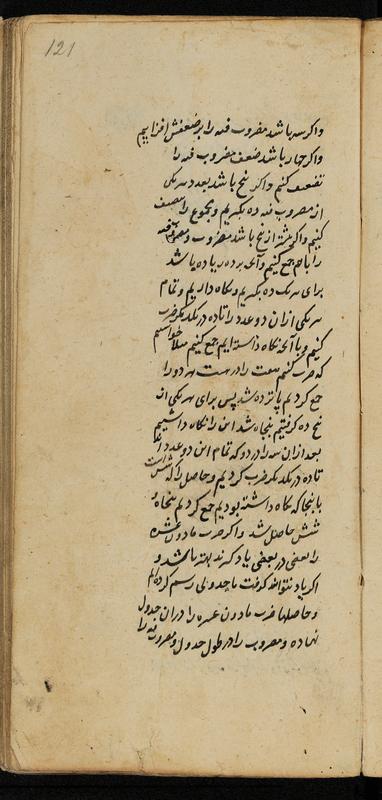 121
واکر سه باشد مضروب فیه را بر ضعفش افزاییم
واکر چهار باشد ضعف مضروب فیه را
تضعیف کنیم واکر پنج باشد بعدد هر یکی
از مضروب فیه ده بکیریم و مجموع را تنصیف
کنیم واکر بیشتر از پنج باشد مضروب و مضروب فیه
را باهم جمع کنیم و آنچه بر ده زیاده باشد
برای هر یک ده بکیریم و نکاه داریم و تمام
هر یکی ازان دو عدد را تا ده در یکدیکر ضرب
کنیم و با آنچه نکاه داشته ایم جمع کنیم مثلا خواستیم
که ضرب کنیم هفت را در هشت هر دو را
جمع کردیم پانزده شد پس برای هر یکی از
پنج ده کرفتیم پنجاه شد این را نکاه داشتیم
بعد ازان سه را در دو که تمام این دو عدد اند
تا ده در یکدیکر ضرب کردیم و حاصل را که شش است
با پنجاه که نکاه داشته بودیم جمع کردیم پنجاه و
شش حاصل شد واکر ضرب مادون عشره
را بعضی در بعضی یاد کیرند بهتر باشد و
اکر یاد نتوانند کرفت ما جدولی رسم کرده ایم
و حاصلها ضرب مادون عشره را دران جدول
نهاده و مضروب را در طول جدول و مضروب فیه را